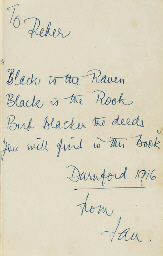 To
Peter
Black is the Raven
Black is the Rook
But blacker the deeds
You will find in this Book
Darnford 1916
from
Ian.